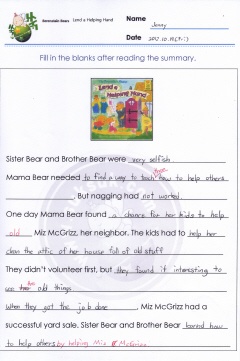 Berenstain Bears Lend a Helping Hand
Name
Jenny
Date 2012.10.19(Fri)
Fill in the blanks after reading the summary.
Lend a Helping Hand
Sister Bear and Brother Bear were very selfish
Mama Bear needed to find a way to teach them how to help others
. But nagging had not worked.
One day Mama Bear found a chance for her kids to help
old Miz McGrizz, her neighbor. The kids had to help her
clean the attic of her house full of old stuff
They didn't volunteer first, but they found it interesting to
see her old things
When they got the job done, Miz McGrizz had a
successful yard sale. Sister Bear and Brother Bear learned how
to help others by helping Miz McGrizz.